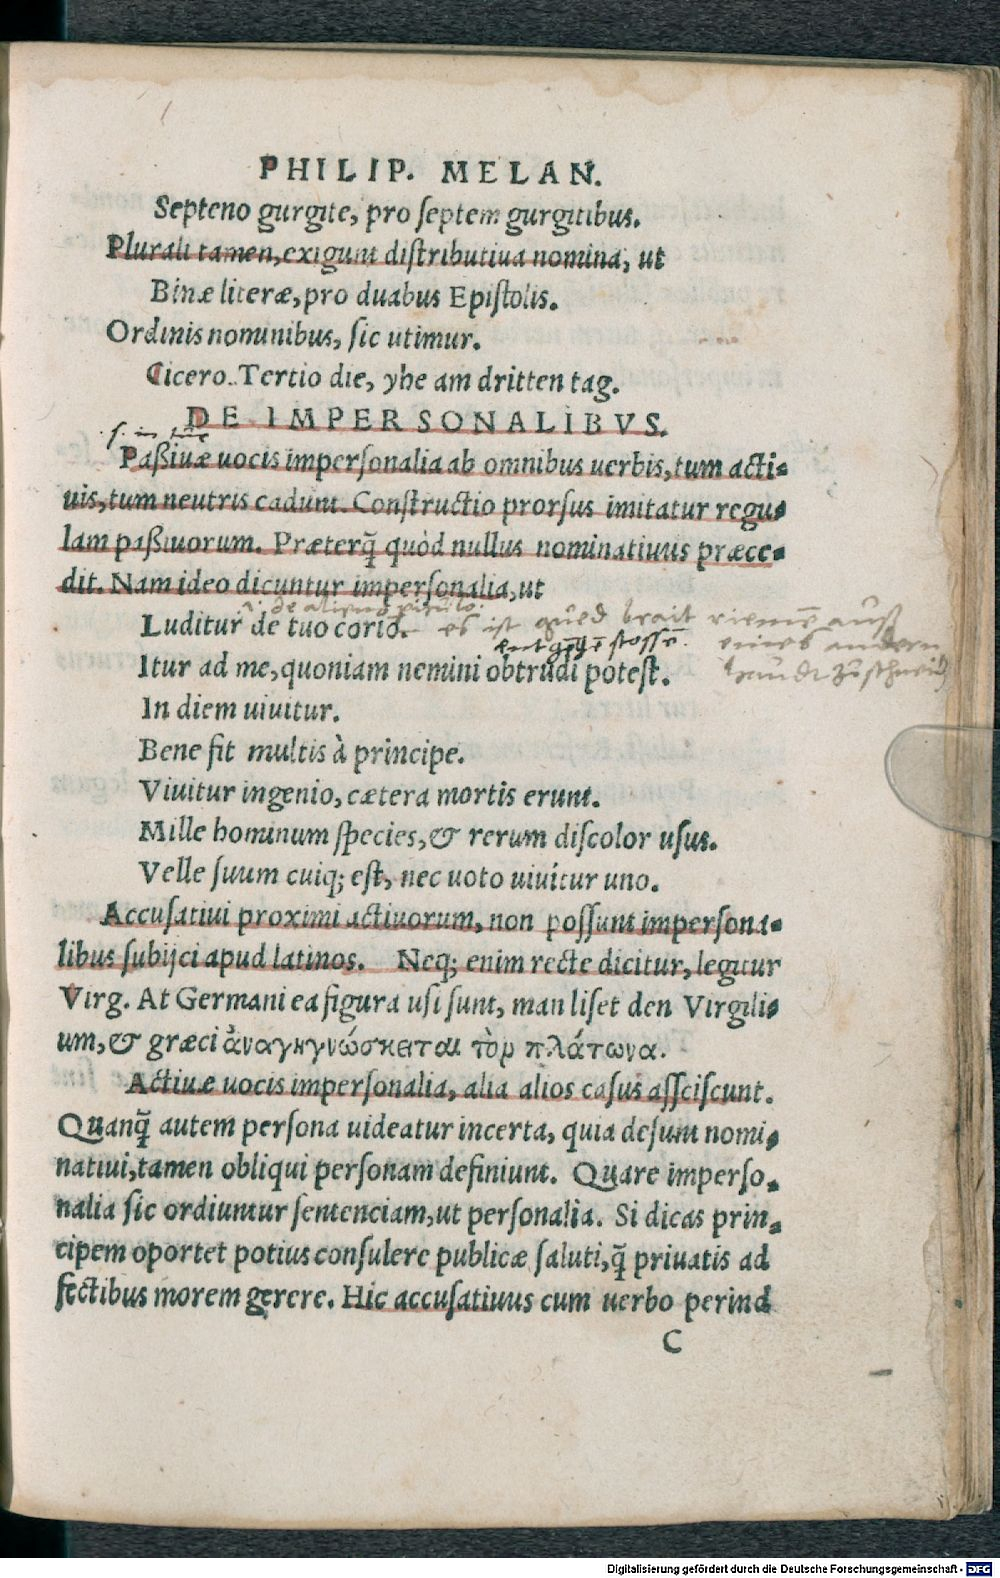 PHILIP. MELAN.
Septeno gurgite, pro ſeptem gurgitibus.
Plurali tamen, exigunt diſtributiua nomina, ut
Binæ literæ, pro duabus Epiſtolis.
Ordinis nominibus, ſic utimur.
Cicero. Tertio die, yhe am dritten tag.
DE IMPERSONALIBVS.
Paßiuæ uocis imperſonalia ab omnibus uerbis, tum acti-
uis, tum neutris cadunt. Conſtructio prorſus imitatur regu-
lam paßiuorum. Præterq̃ quòd nullus nominatiuus præce-
dit. Nam ideo dicuntur imperſonalia, ut
Luditur de tuo corio. es ist gůed brait riemẽ auß
eines andern
Itur ad me, quoniam nemini obtrudi poteſt.
In diem uiuitur.
Bene fit multis à principe.
Viuitur ingenio, cætera mortis erunt.
Mille hominum ſpecies, & rerum diſcolor uſus.
Velle ſuum cuiq; eſt, nec uoto uiuitur uno.
Accuſatiui proximi actiuorum, non poſſunt imperſona-
libus ſubijci apud latinos. Neq; enim recte dicitur, legitur
Virg. At Germani ea figura uſi ſunt, man liſet den Virgili-
um, & græci ἀναγιγνώσκεται τὸν πλάτωνα.
Actiuæ uocis imperſonalia, alia alios caſus aſſciſcunt.
Quanq̃ autem perſona uideatur incerta, quia deſunt nomi-
natiui, tamen obliqui perſonam definiunt. Quare imperſo-
nalia ſic ordiuntur ſentenciam, ut perſonalia. Si dicas prin-
cipem oportet potius conſulere publicæ ſaluti, q̃ priuatis ad
fectibus morem gerere. Hic accuſatiuus cum uerbo perind
C
Digitalisierung gefördert durch die Deutsche Forschungsgemeinschaft - DFG